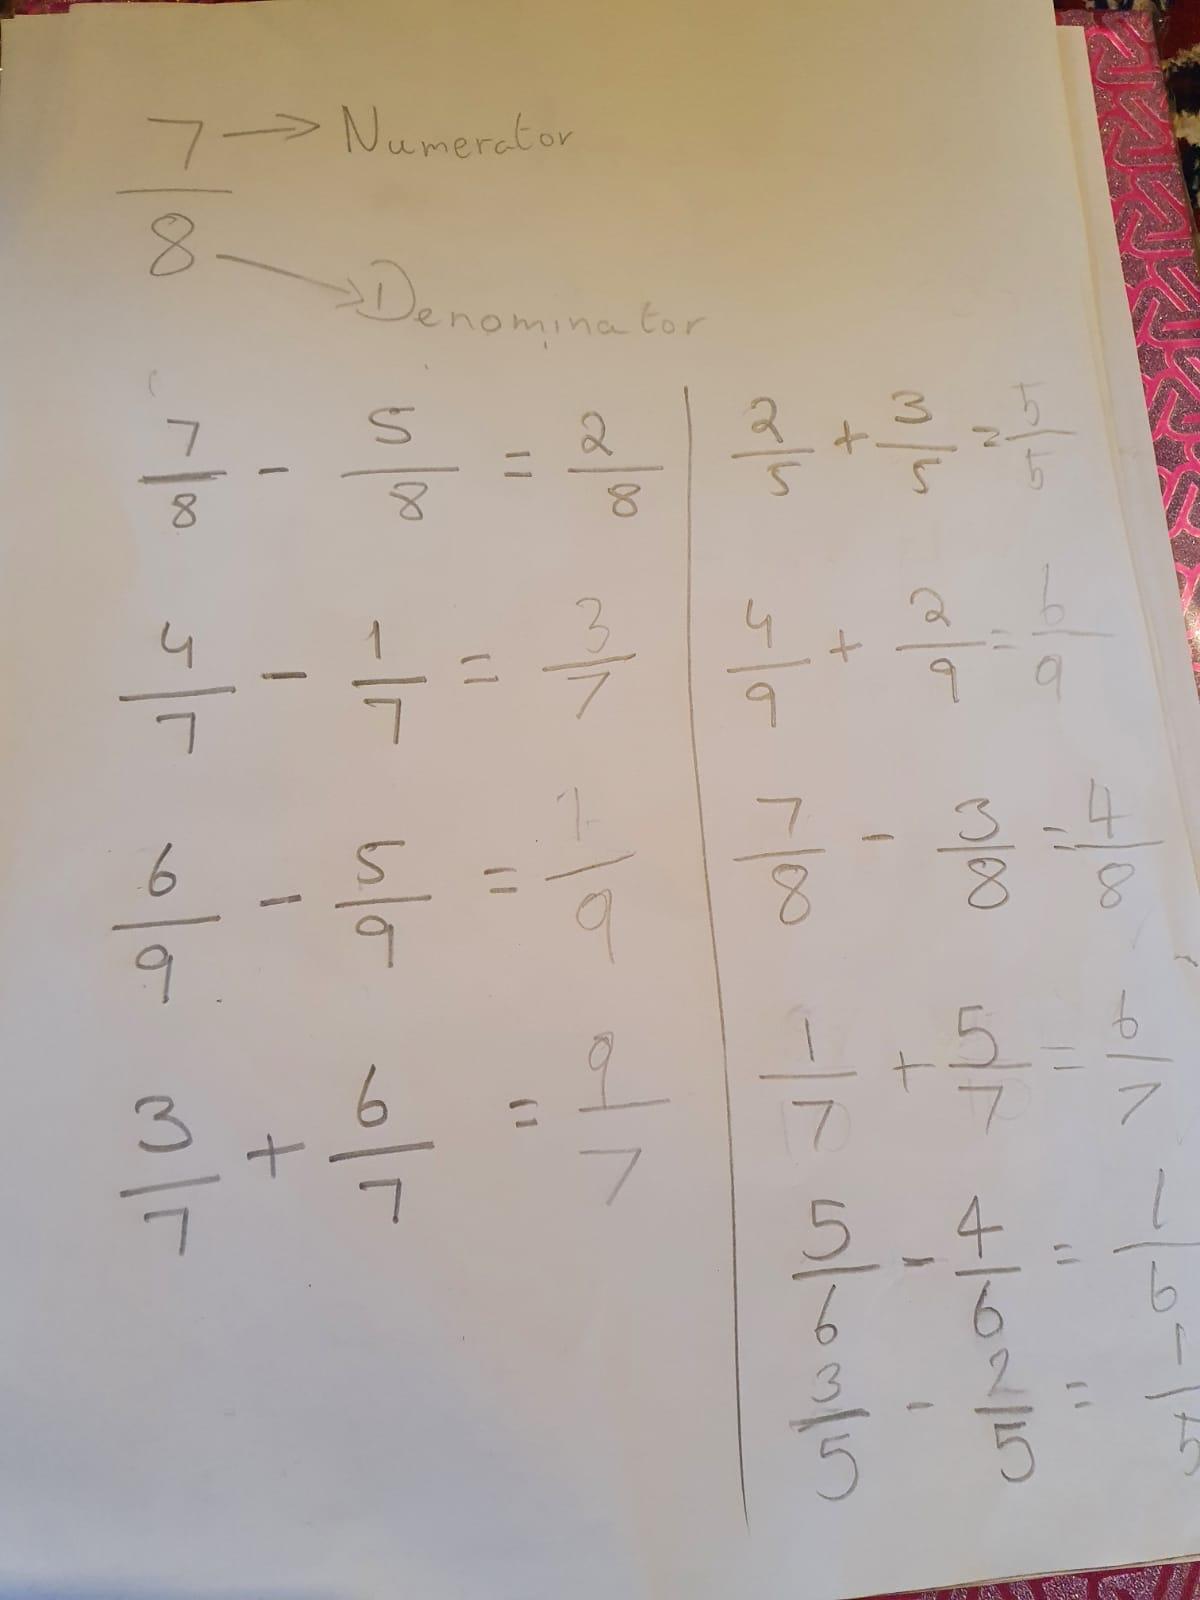 7 → Numerator
8 → Denominator
7/8 - 5/8 = 2/8
4/7 - 1/7 = 3/7
6/9 - 5/9 = 1/9
3/7 + 6/7 = 9/7
2/5 + 3/5 = 5/5
4/9 + 2/9 = 6/9
7/8 - 3/8 = 4/8
1/7 + 5/7 = 6/7
5/6 - 4/6 = 1/6
3/5 - 2/5 = 1/5